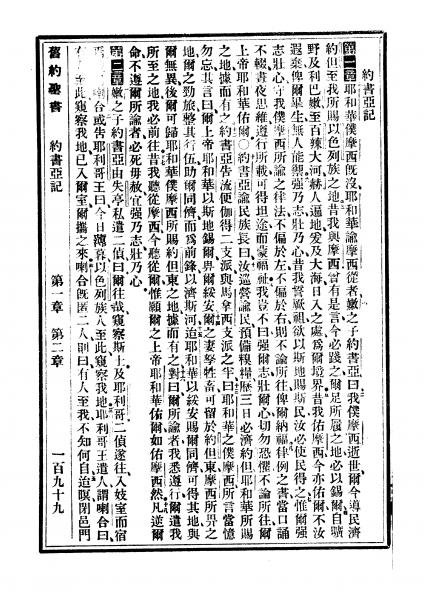 約書亞記
第一章耶和華僕摩西旣沒、耶和華諭摩西從者嫩之子約書亞曰、我僕摩西逝世、爾今導民濟
約但、至我所賜以色列族之地、昔我與摩西曾有是言、今必踐之、爾足所履之地、必以錫爾、自曠
野及利巴嫩、至百辣大河、赫人遍地、爰及大海日入之處、爲爾境界、昔我佑摩西、今亦佑爾、不汝
遐棄、俾爾畢生無人能禦、强乃志、壯乃心、昔我誓爾祖、欲以斯地賜斯民、汝必使民得之、惟爾强
志壯心、守我僕摩西所諭之律法、不偏於左、不偏於右、則不論所往、俾爾納福、律例之書、當口誦
不輟、晝夜思維、遵行所載、可得坦途、而蒙福祉、我豈不曰、强爾志、壯爾心、切勿恐懼、不論所往、爾
上帝耶和華佑爾、○約書亞諭民族長曰、汝巡營諭民、預備糗糧、歷三日必濟約但、耶和華所賜
之地、據而有之、約書亞告流便伽得二支派、與馬拿西支派之半曰、耶和華之僕摩西所言、當憶
勿忘、其言曰、爾上帝耶和華、以斯地錫爾、畀爾綏安、爾之妻孥牲畜、可留於約但東、摩西所畀之
地、爾之勁旅、整其行伍、助爾同儕、而爲前鋒、以濟斯河、迨耶和華以綏安賜爾同儕、可得其地、與
爾無異、後爾可歸耶和華僕摩西所賜約但東之地、據而有之、對曰、爾所諭者、我悉遵行、爾遣我
所至之地、我必前往、昔我聽從摩西、今聽從爾、惟願爾之上帝耶和華佑爾、如佑摩西然、凡逆爾
命、不遵爾所諭者、必死毋赦、宜强乃志、壯乃心、
第二章嫩之子約書亞由失亭私遣二偵曰、爾往哉、窺察斯土、及耶利哥、二偵遂往、入妓室而宿
焉、喇合、或告耶利哥王曰、今日薄暮、以色列族人至此、窺察我地、耶利哥王遣人謂喇合曰、
人至此窺察我地、已入爾室、爾攜之來、喇合旣匿二人、則曰、有人至我、不知何自、迨暝、閉邑門
舊約聖書 約書亞記 第一章 第二章 一百九十九